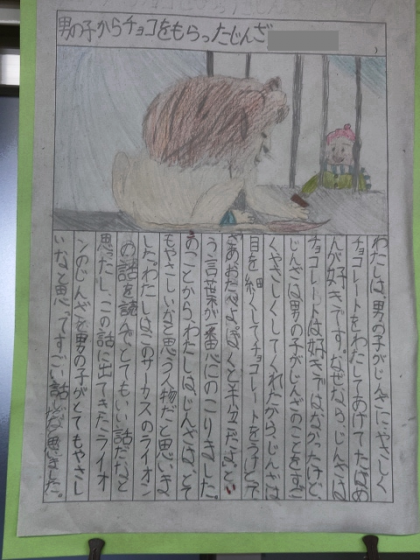 男の子からチョコをもらったじんざ
わたしは、男の子がじんざにやさしく
チョコレートをわたしてあげてた場め
んが好きです。なぜなら、じんざは、
チョコレートは好きではなかったけど、
じんざは男の子がじんざのことをすご
くやさしくしてくれたから、じんざは
目を細くしてチョコレートをうけとって
う言葉が一番心にのこりました。
のことから、わたしは、じんざは、とて
もやさしいかと思う人物だと思いま
した。わたしはこのサーカスのライオン
の話を読んでとてもいい話だなと
思ったし、この話に出てきたライオ
ンのじんざと男の子がとてもやさし
いなと思ってすごい話だな思きました。